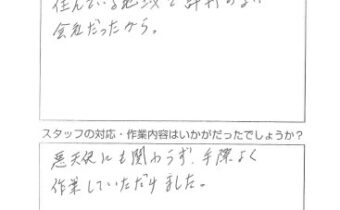 住んでいる地域で評判のよい
会社だったから。
スタッフの対応・作業内容はいかがだったでしょうか？
悪天候にも関わらず、手際よく
作業していただけました。